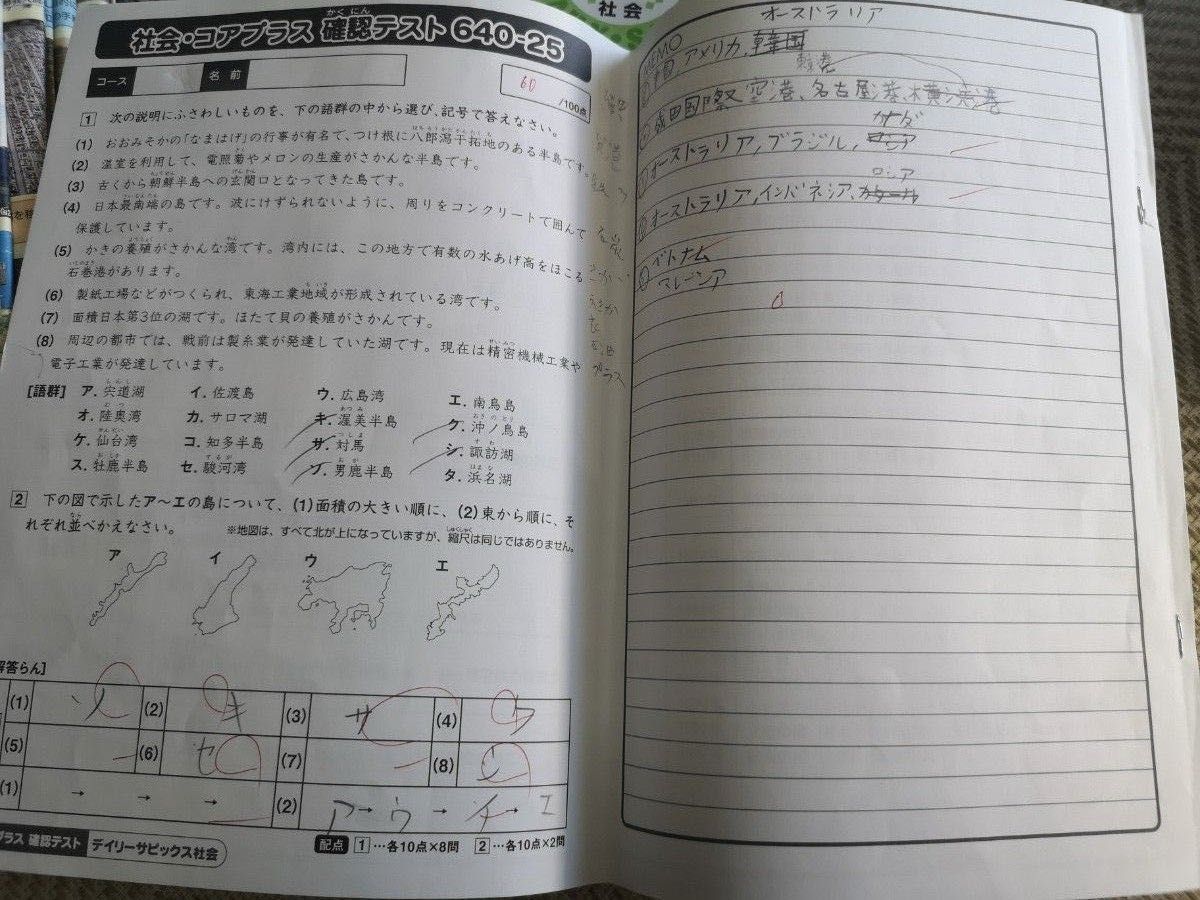 社会・コアプラス 確認テスト 640-25
コース 名前
60
/100点
1 次の説明にふさわしいものを、下の語群の中から選び、記号で答えなさい。
(1) おおみそかの「なまはげ」の行事が有名で、つけ根に八郎潟干拓地のある半島です。
(2) 温室を利用して、電照菊やメロンの生産がさかんな半島です。
(3) 古くから朝鮮半島への玄関口となってきた島です。
(4) 日本最南端の島です。波にけずられないように、周りをコンクリートで囲んで
保護しています。
(5) かきの養殖がさかんな湾です。湾内には、この地方で有数の水あげ高をほこる
石巻港があります。
(6) 製紙工場などがつくられ、東海工業地域が形成されている湾です。
(7) 面積日本第3位の湖です。ほたて貝の養殖がさかんです。
(8) 周辺の都市では、戦前は製糸業が発達していた湖です。現在は精密機械工業や
電子工業が発達しています。
[語群] ア. 宍道湖 イ. 佐渡島 ウ. 広島湾 エ. 南鳥島
オ. 陸奥湾 カ. サロマ湖 キ. 渥美半島 ク. 沖ノ鳥島
ケ. 仙台湾 コ. 知多半島 サ. 対馬 シ. 諏訪湖
ス. 牡鹿半島 セ. 駿河湾 ソ. 男鹿半島 タ. 浜名湖
2 下の図で示したア〜エの島について、(1)面積の大きい順に、(2)東から順に、そ
れぞれ並べかえなさい。 ※地図は、すべて北が上になっていますが、縮尺は同じではありません。
ア イ ウ エ
解答らん]
(1) ソ (2) キ (3) サ (4) ク
(5) (6) セ (7) (8) シ
(1) → → → (2) ア→ウ→イ→エ
プラス 確認テスト デイリーサピックス社会
配点 1…各10点×8問 2…各10点×2問
社会
オーストラリア
MEMO
中国, アメリカ, 韓国
成田国際空港、名古屋港、横浜港
カナダ
オーストラリア, ブラジル,
ロシア
オーストラリア, インドネシア,
ベトナム
マレーシア